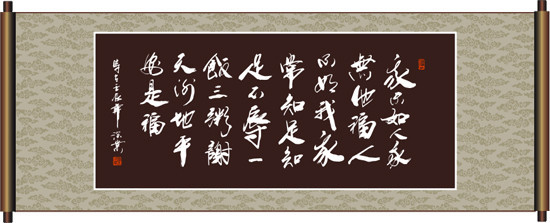 家不如人家
無他福人
不如我家
常知足知
足不辱一
飯三粥謝
天謝地平
安是福